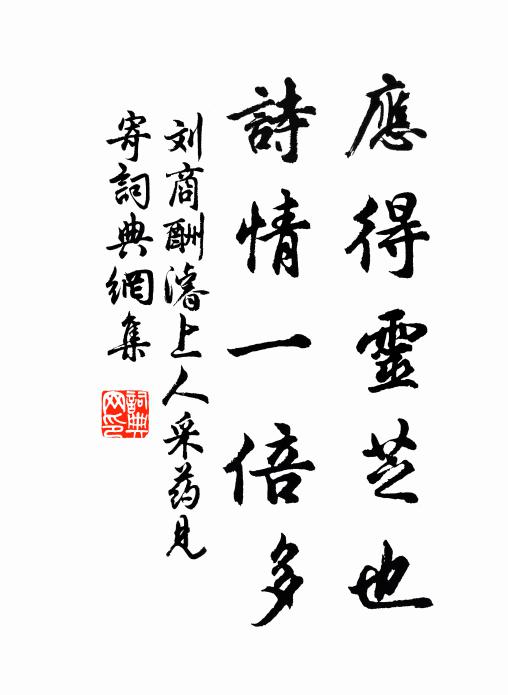 應得靈芝也
詩情一倍多
刘商酬濬上人采药見
寄詞典網集
詞典网印